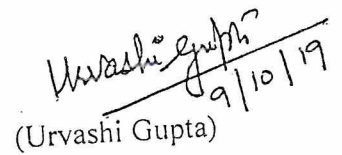 Urvashi Gupta
9/10/19
(Urvashi Gupta)